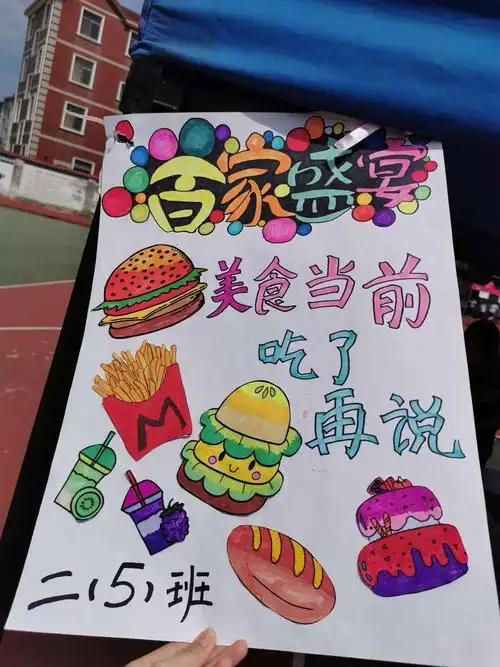 百家盛宴
美食当前
吃了
再说
M
二(5)班